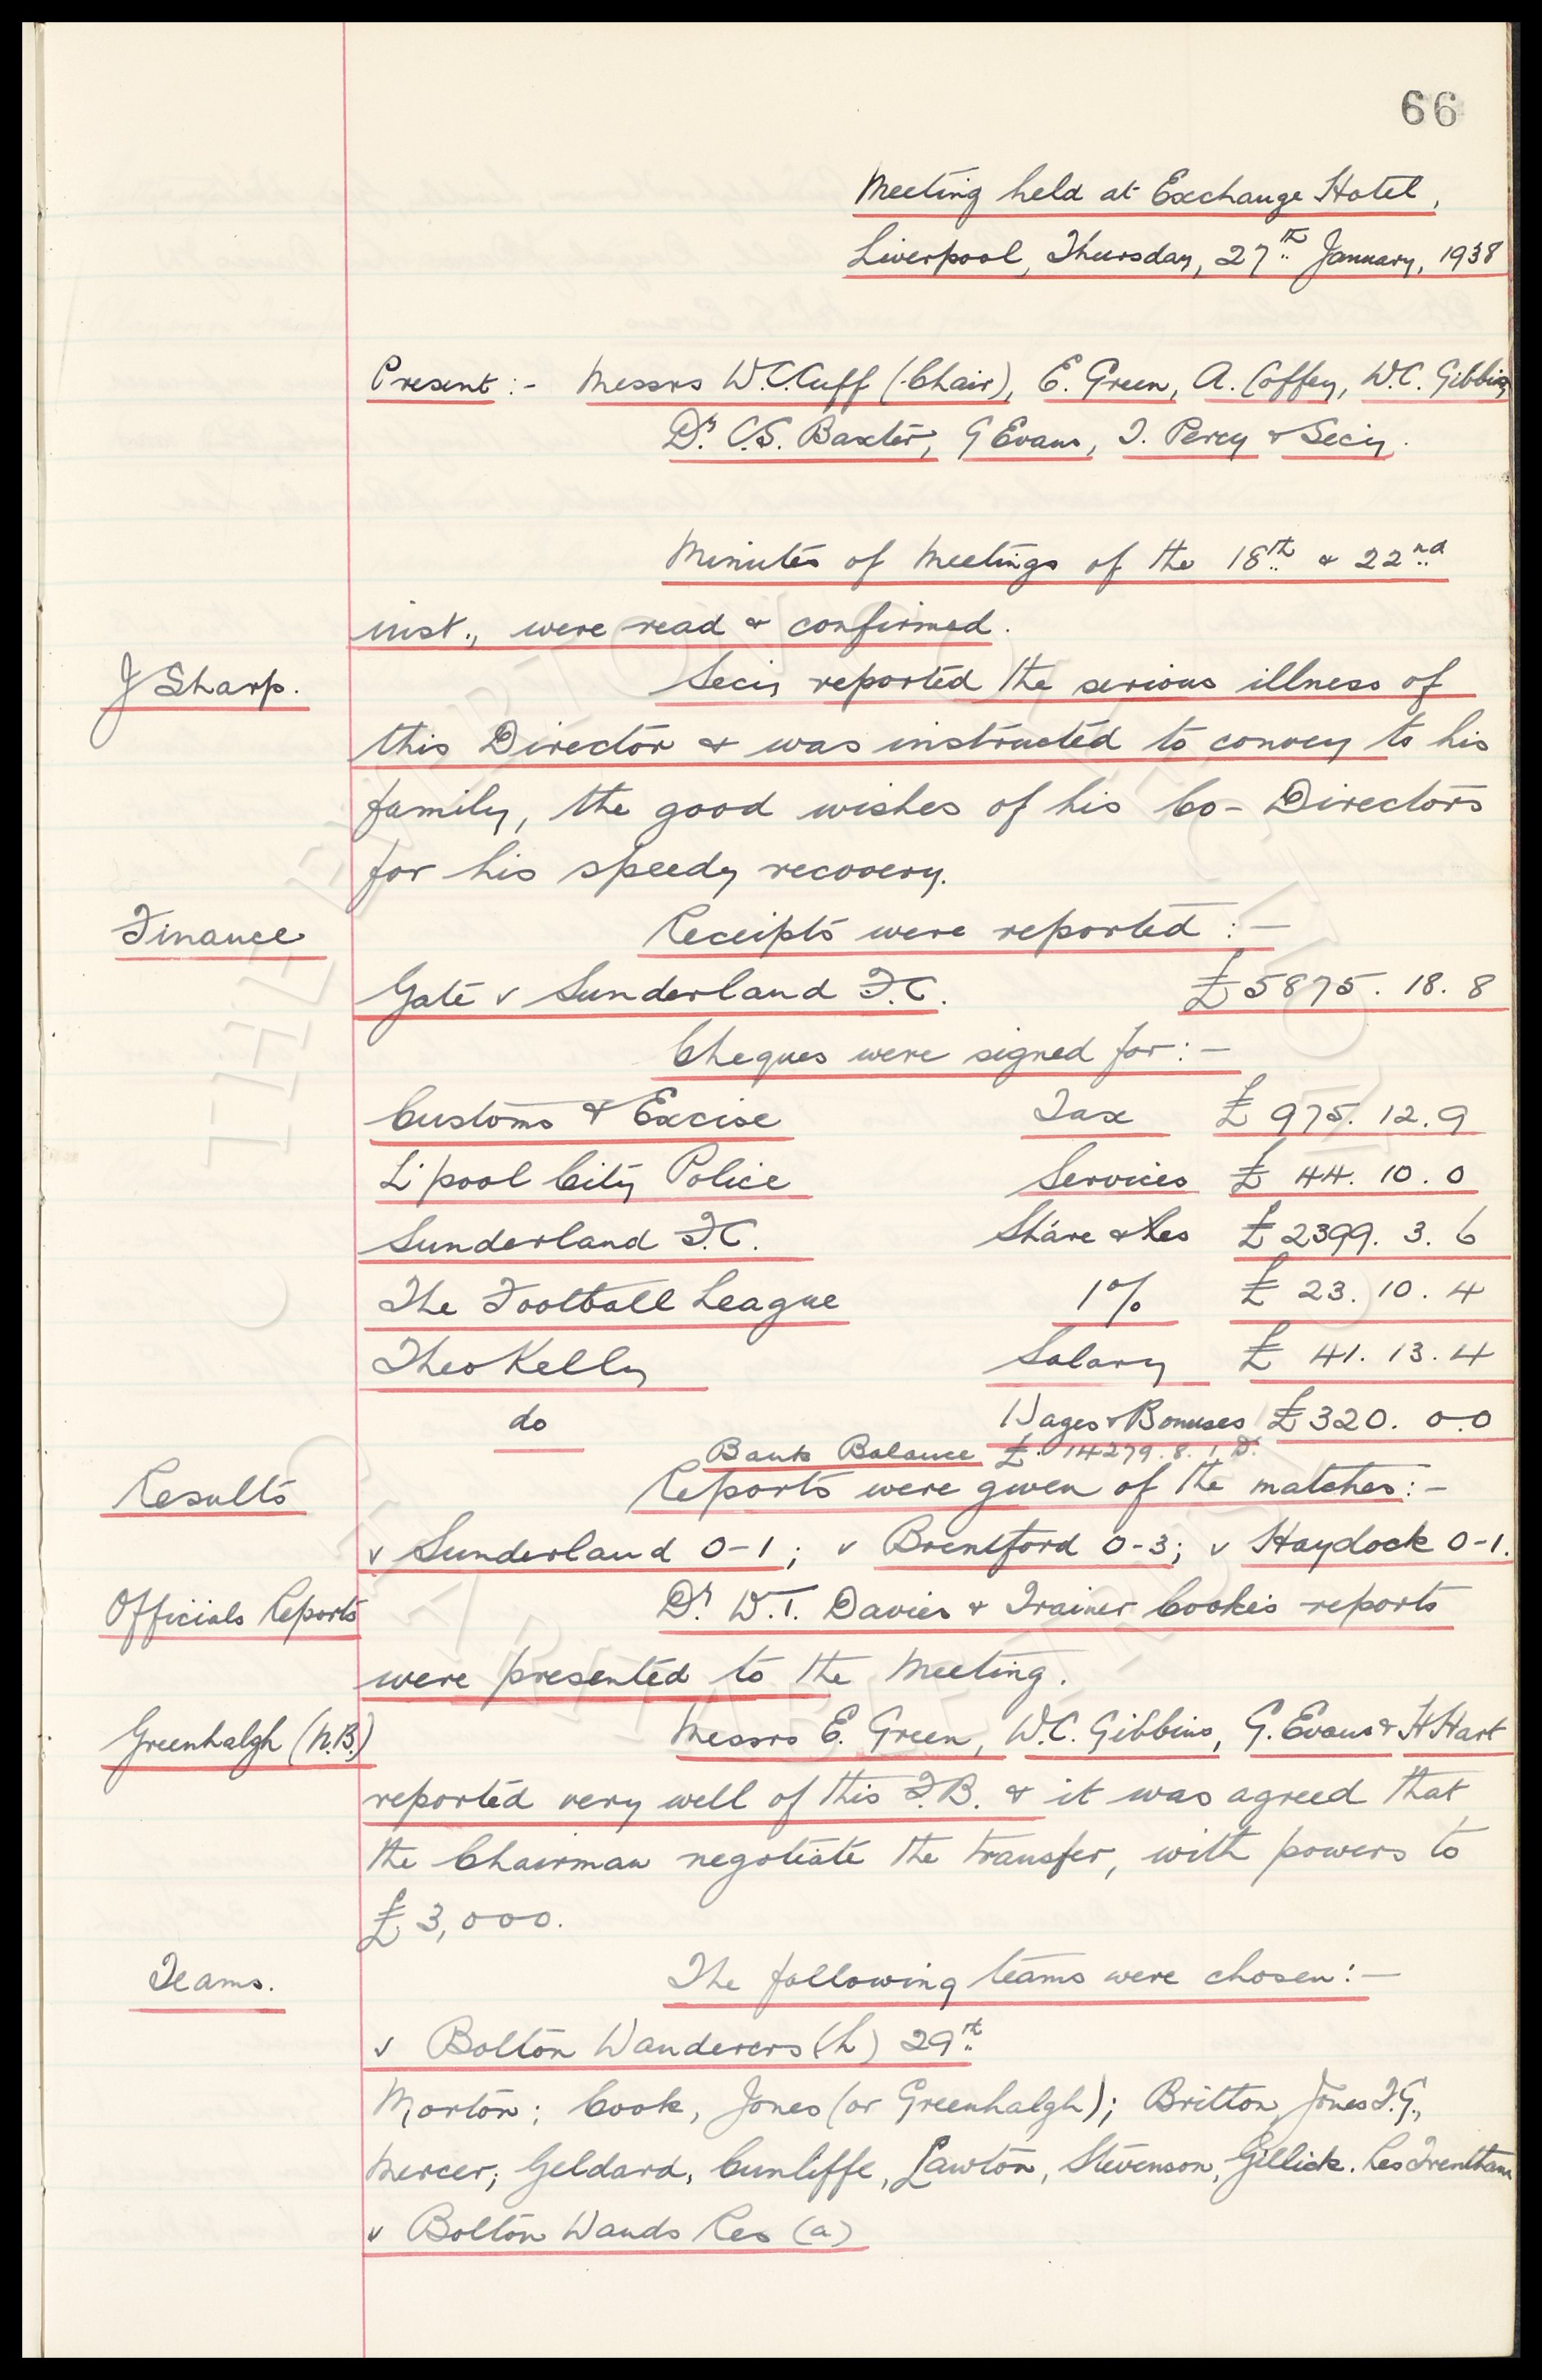 66
Meeting held at Exchange Hotel,
Liverpool, Thursday, 27th January, 1938
Present :- Messrs W.C. Cuff (Chair), E. Green, A. Coffey, W.C. Gibbins
Dr. C.S. Baxter, G Evans, T. Percy & Secy.
Minutes of Meetings of the 18th & 22nd
inst., were read & confirmed.
J Sharp. Secy reported the serious illness of
this Director & was instructed to convey to his
family, the good wishes of his Co-Directors
for his speedy recovery.
Finance Receipts were reported :-
Gate v Sunderland F.C. £5875. 18. 8
Cheques were signed for :-
Customs & Excise Tax £ 975. 12. 9
L'pool City Police Services £ 44. 10. 0
Sunderland F.C. Share & Res £ 2399. 3. 6
The Football League 1% £ 23. 10. 4
Theo Kelly Salary £ 41. 13. 4
do Wages & Bonuses £320. 0.0
Bank Balance £ 14279. 8. 1. Dr.
Results Reports were given of the matches :-
v Sunderland 0-1; v Brentford 0-3; v Haydock 0-1.
Officials Reports Dr. W.T. Davies & Trainer Cooke's reports
were presented to the Meeting.
Greenhalgh (N.B.) Messrs E. Green, W.C. Gibbins, G. Evans & H Hart
reported very well of this F.B. & it was agreed that
the Chairman negotiate the transfer, with powers to
£3,000.
Teams. The following teams were chosen :-
v Bolton Wanderers (h) 29th
Morton; Cook, Jones (or Greenhalgh); Britton, Jones T.G.,
Mercer; Geldard, Cunliffe, Lawton, Stevenson, Gillick. Res Trentham
v Bolton Wands Res (a)
THE EVERTON COLLECTION
CHARITABLE TRUST